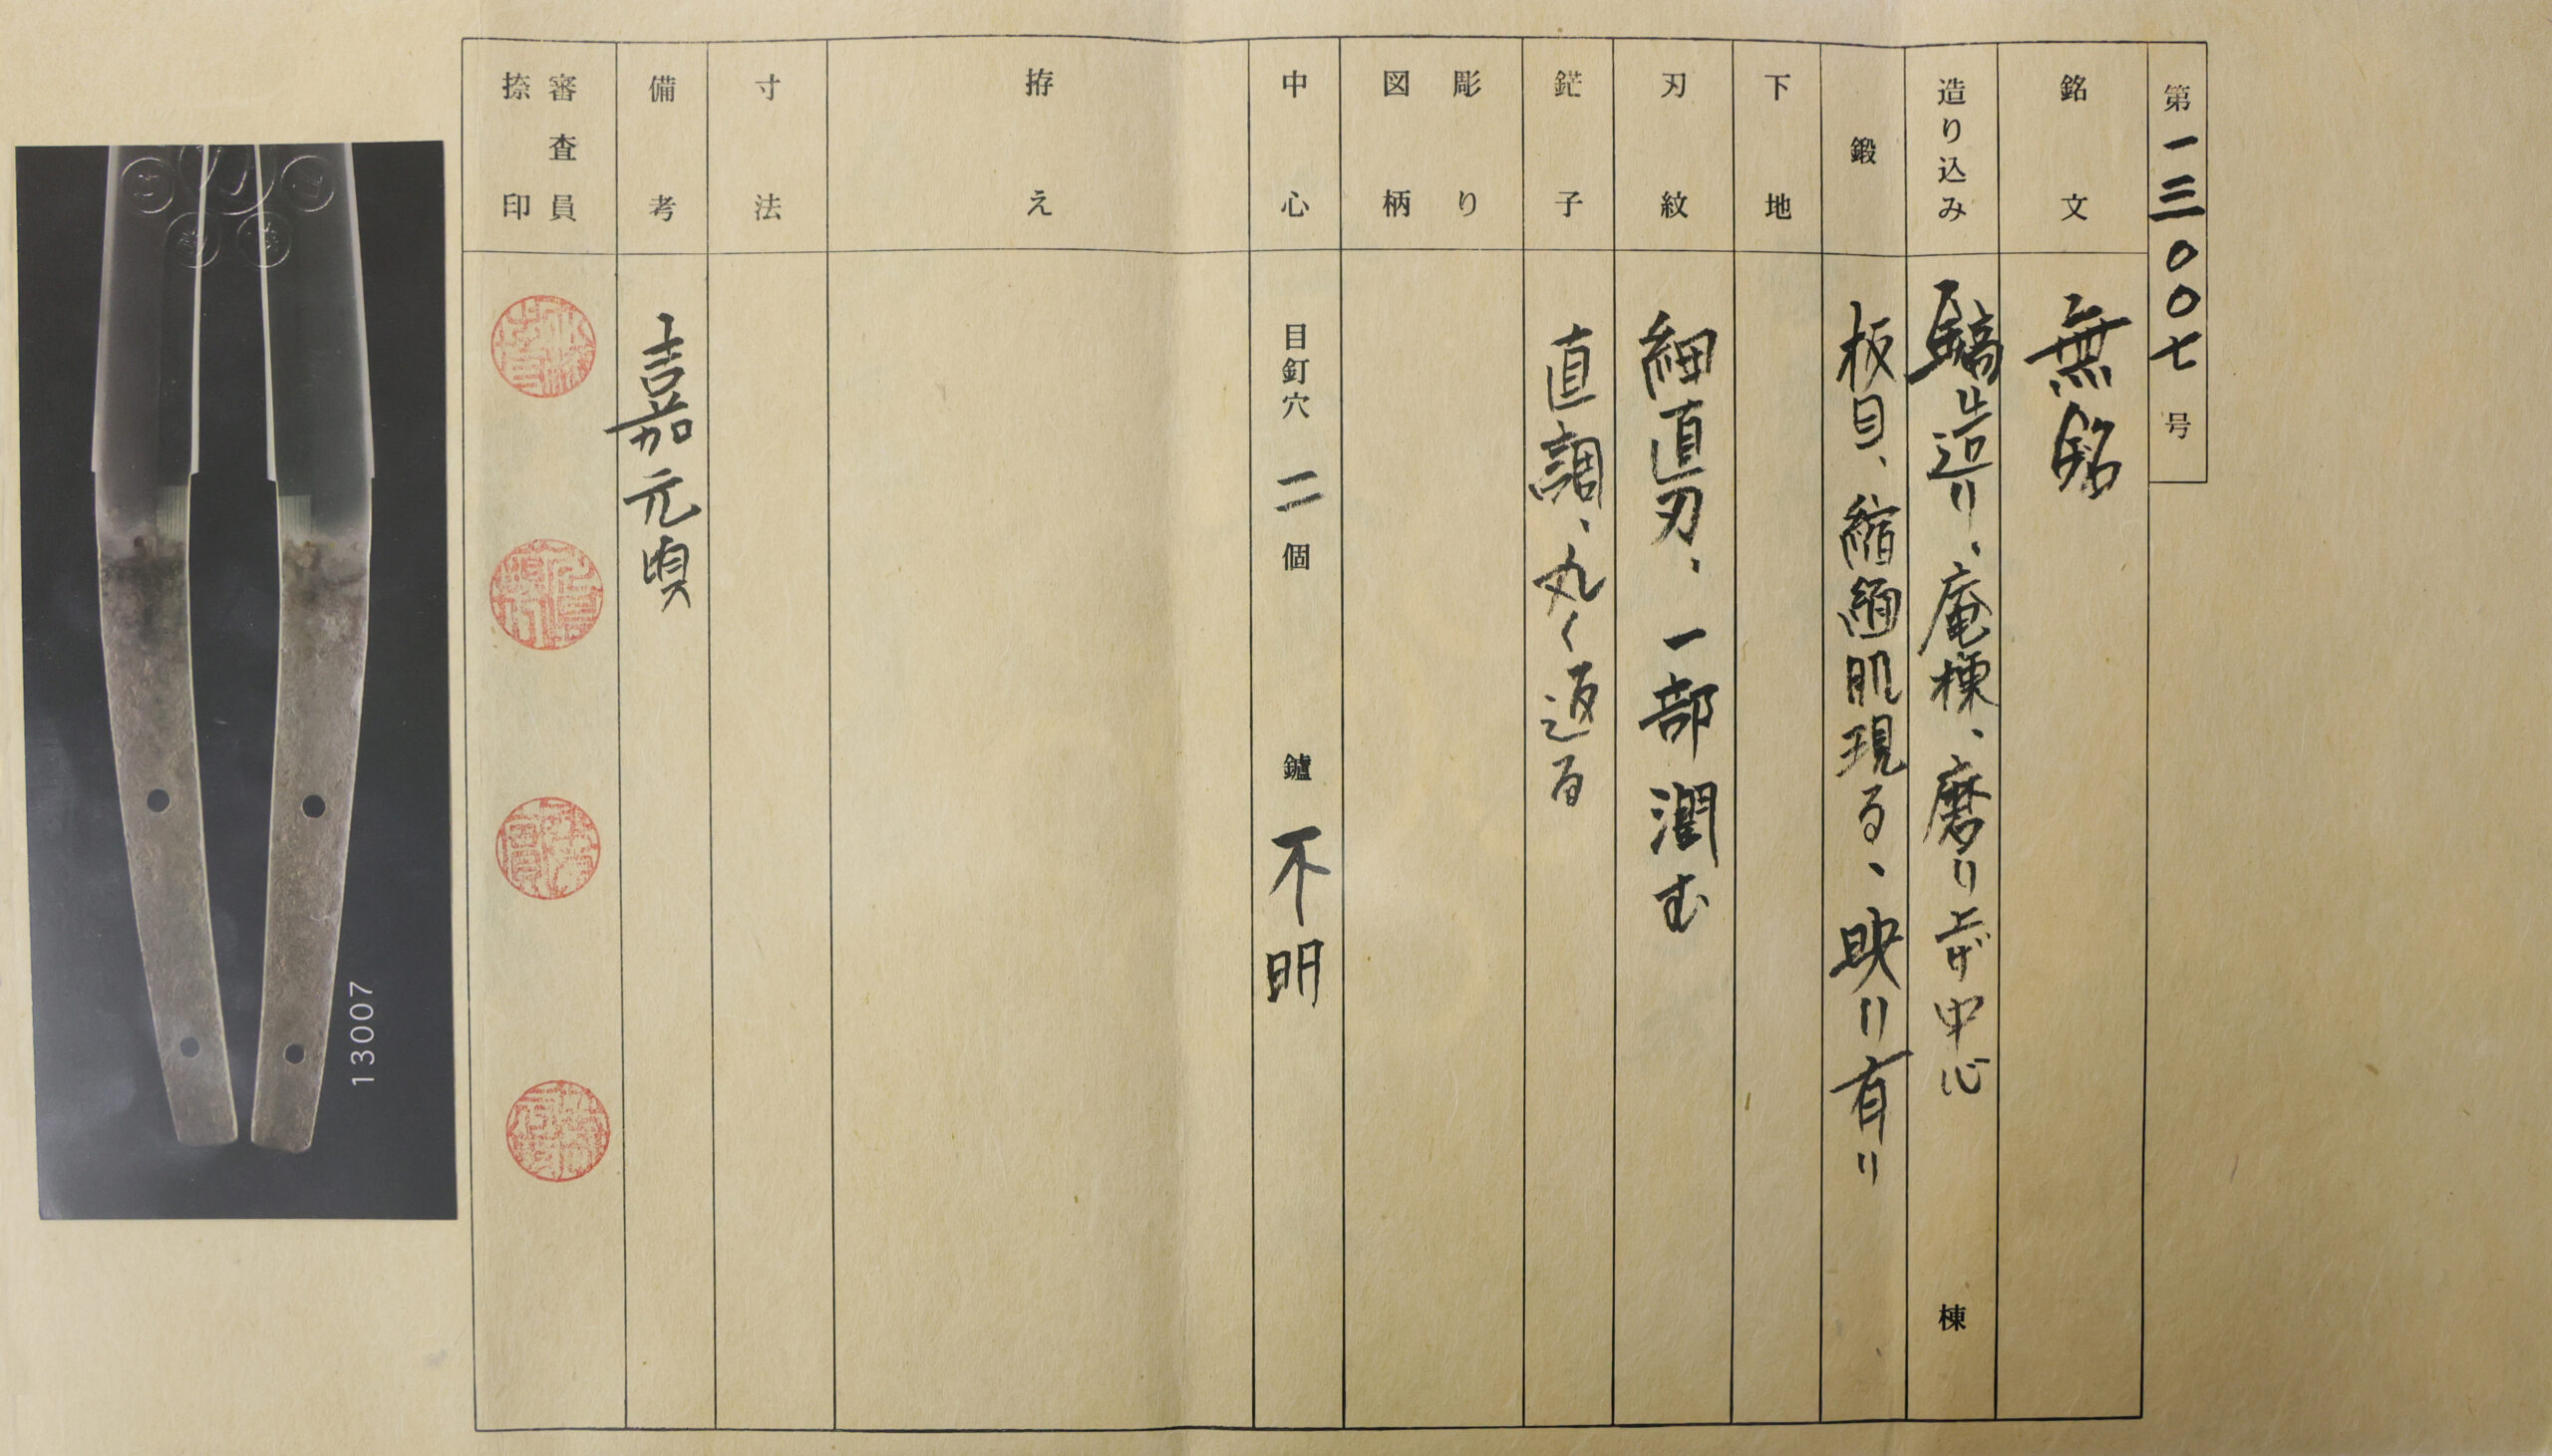 第一三〇〇七号
銘文
無銘
造り込み
鎬造り、庵棟、磨り上げ中心
棟
鍛
板目、縮緬肌現る、映り有り
下地
刃紋
細直刃、一部潤む
鋩子
直調、丸く返る
彫り
図柄
中心
目釘穴 二 個
鑢 不明
拵え
寸法
備考
嘉元頃
審査員
捺印
13007